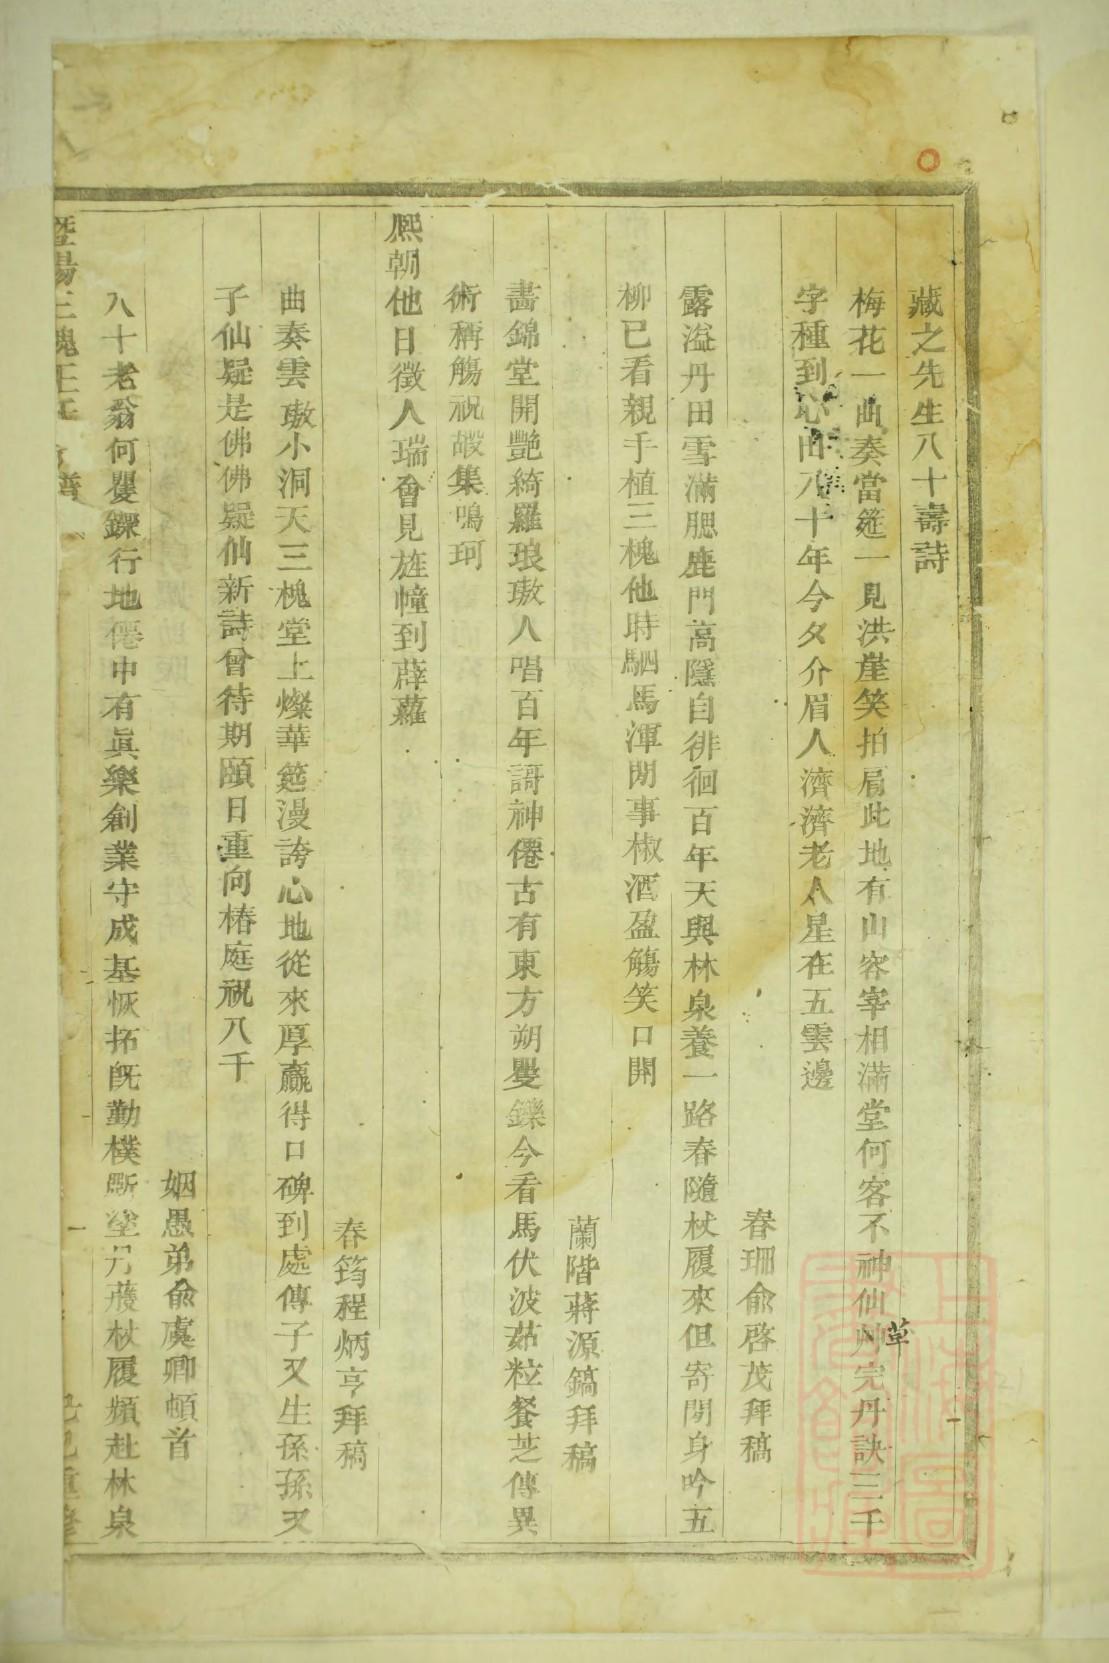 藏之先生八十壽詩
梅花一曲奏當筵一見洪崖笑拍肩此地有山容宰相滿堂何客不神仙艸完丹訣三千
草
字種到心田八十年今夕介眉人濟濟老人星在五雲邊
春珊俞啓茂拜稿
露溢丹田雪滿腮鹿門高隱自徘徊百年天與林泉養一路春隨杖履來但寄閒身吟五
柳已看親手植三槐他時駟馬渾閒事椒酒盈觴笑口開
蘭階蔣源鎬拜稿
畵錦堂開艷綺羅琅璈人唱百年謌神僊古有東方朔矍鑠今看馬伏波菇粒餐芝傳異
術稱觴祝嘏集鳴珂
熈朝他日徵人瑞會見旌幢到薜蘿
春筠程炳亨拜稿
曲奏雲璈小洞天三槐堂上燦華筵漫誇心地從來厚贏得口碑到處傳子又生孫孫又
子仙疑是佛佛疑仙新詩曾待期頤日重向椿庭祝八千
姻愚弟俞虞卿頓首
八十老翁何矍鑠行地僊中有眞樂創業守成基恢拓旣勤樸斲塗丹雘杖履頻赴林泉
暨陽三槐王氏宗譜
一
己巳重修
上海圖書館藏